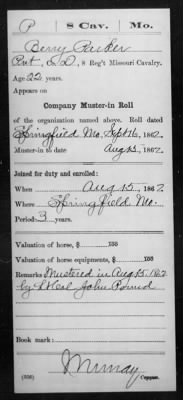 P 8 Cav. Mo.
Berry Parker
Pvt., Co. D, 8 Reg't Missouri Cavalry.
Age 22 years.
Appears on
Company Muster-in Roll
of the organization named above. Roll dated
Springfield Mo, Sept 16, 1862.
Muster-in to date Aug 15, 1862.
Joined for duty and enrolled:
When Aug 15, 1862.
Where Springfield Mo.
Period 3 years.
Valuation of horse, $ 100
Valuation of horse equipments, $ 100
Remarks Mustered in Aug 15 1862
by Lt Col John
Book mark:
Murray
(356) Copyist.